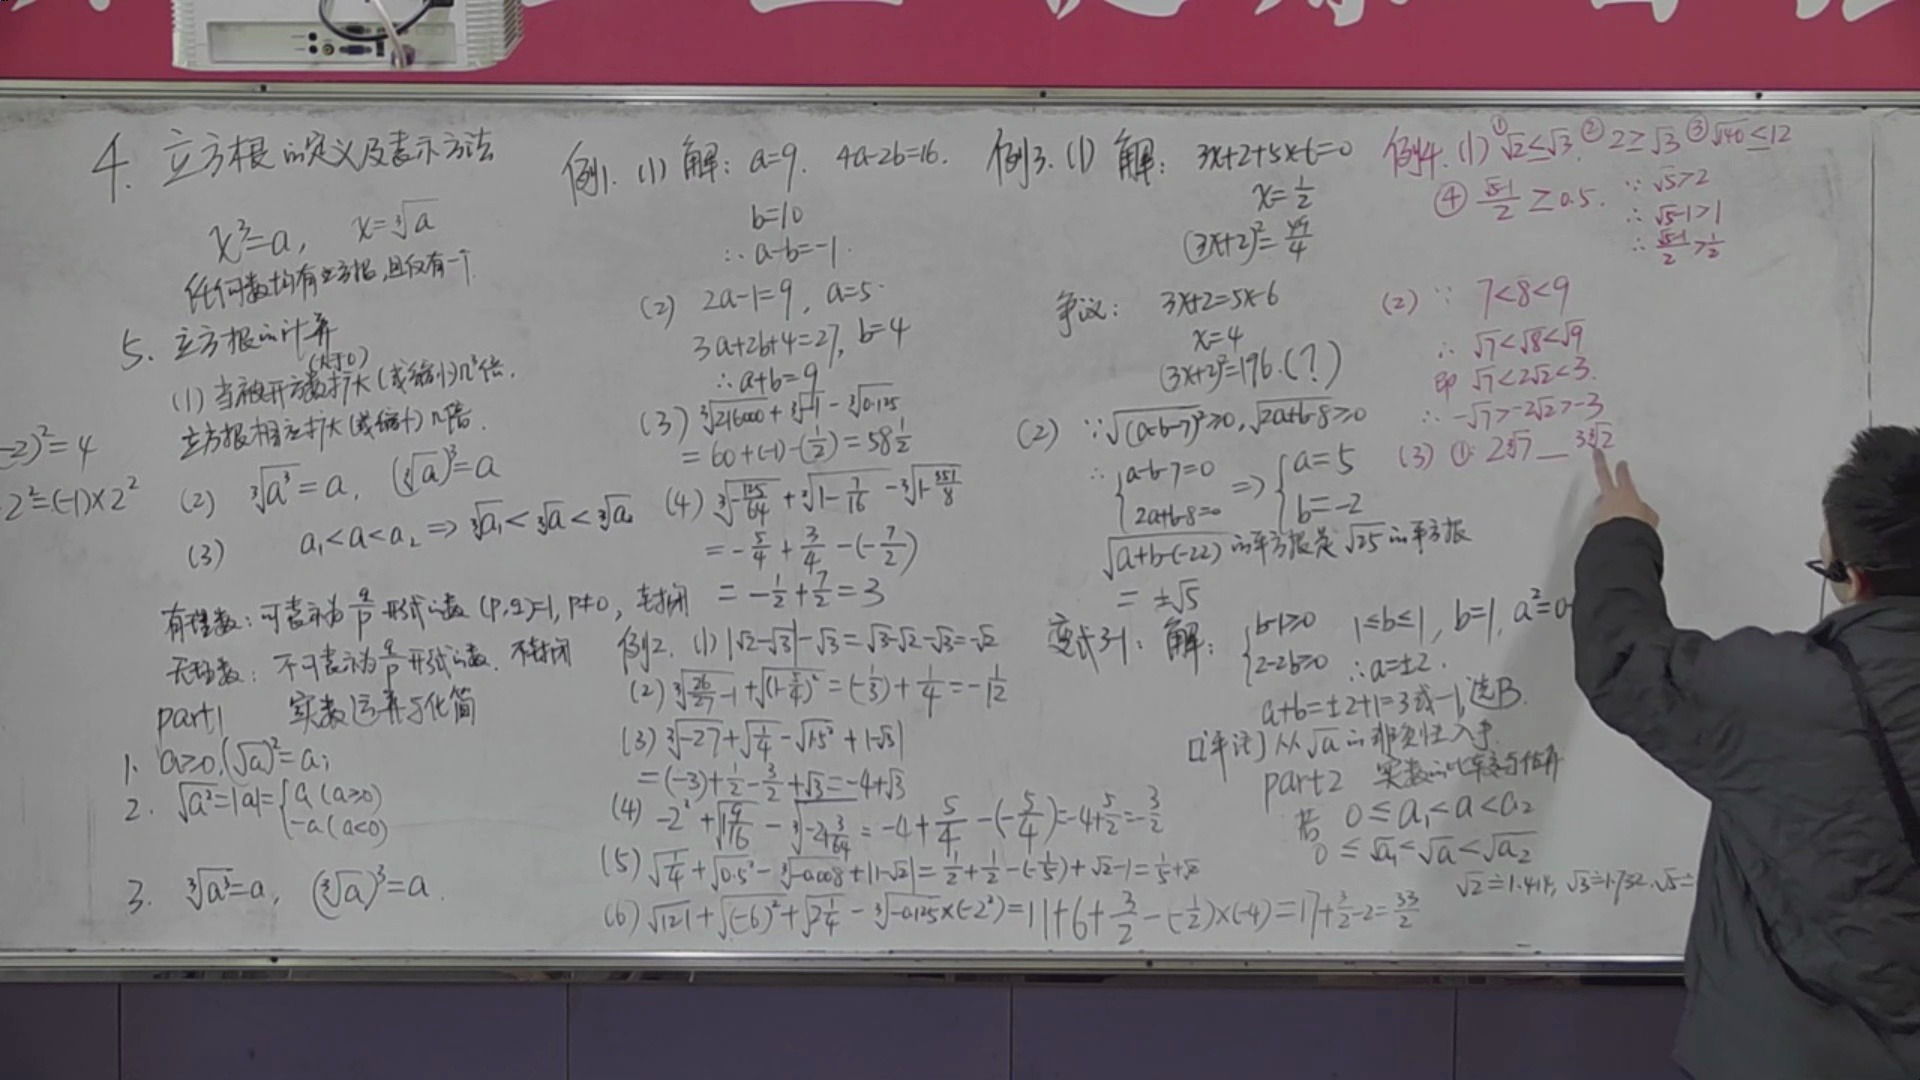 4. 立方根的定义及表示方法
x³=a, x=∛a
任何数均有立方根,且仅有一个
5. 立方根的计算
(大于0)
(1) 当被开方数扩大(或缩小)n³倍,
立方根相应扩大(或缩小)n倍.
-2)²=4
2²=(-1)×2²
(2) ∛a³=a, (∛a)³=a
(3) a₁<a<a₂ => ∛a₁<∛a<∛a₂
有理数: 可表示为 q/p 形式的数 (p,q)=1, p≠0, 封闭
无理数: 不可表示为 q/p 形式的数. 不封闭
part1 实数运算与化简
1. a≥0,(√a)²=a;
2. √a²=|a|={a (a≥0)
-a (a<0)
3. ∛a³=a, (∛a)³=a.
例1. (1) 解: a=9. 4a-2b=16.
b=10
∴ a-b=-1.
(2) 2a-1=9, a=5.
3a+2b+4=27, b=4
∴ a+b=9
(3) ∛216000 + ∛-1 - ∛0.125
= 60+(-1)-(1/2)=58 1/2
(4) ∛-125/64 + ∛1-7/16 - ∛1-351/8
= -5/4 + 3/4 -(-7/2)
= -1/2 + 7/2 = 3
例2. (1) |√2-√3|-√3=√3-√2-√3=-√2
(2) ∛26/27-1 + √(1-5/4)² = (-1/3)+1/4=-1/12
(3) ∛-27+√1/4-√1.5²+|1-√3|
=(-3)+1/2-3/2+√3=-4+√3
(4) -2²+√1 9/16-∛-2+3/64=-4+5/4-(-5/4)=-4+5/2=-3/2
(5) √1/4+√0.5²-∛-0.008+|1-√2|=1/2+1/2-(-1/5)+√2-1=1/5+√2
(6) √121+√(-6)²+√2 1/4-∛-0.125×(-2²)=11+6+3/2-(-1/2)×(-4)=17+3/2-2=33/2
例3. (1) 解: 3x+2+5x-6=0
x=1/2
(3x+2)²=49/4
争议: 3x+2=5x-6
x=4
(3x+2)²=196.(?)
(2) ∵√(a-b-7)²≥0,√2a+b-8≥0
∴ {a-b-7=0
2a+b-8=0 => {a=5
b=-2
√a+b-(-22) 的平方根是 √25 的平方根
= ±√5
变式3-1: 解: {b-1≥0
2-2b≥0 1≤b≤1, b=1, a²=
∴a=±2.
a+b=±2+1=3或-1,选B.
[评注]从√a的非负性入手.
part2 实数的比较与估算
若 0≤a₁<a<a₂
0≤√a₁<√a<√a₂
√2≐1.414, √3≐1.732, √5≐
例4. (1) ①√2≤√3. ②2≥√3 ③√140≤12
④ √5-1/2 ≥0.5. ∵ √5>2
∴ √5-1>1
∴ √5-1/2>1/2
(2) ∵ 7<8<9
∴ √7<√8<√9
即 √7<2√2<3.
∴ -√7>-2√2>-3
(3) ① 2∛7__3∛2